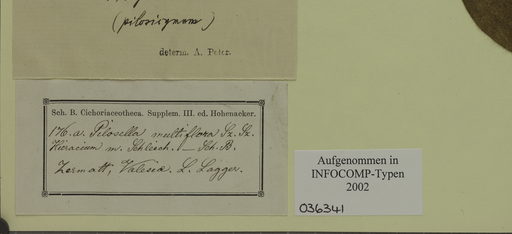 (pilosiquum)
determ. A. Peter.
Sch. B. Cichoriaceotheca. Supplem. III. ed. Hohenacker.
176. a. Pilosella multiflora Sz. Sz.
Hieracium m. Schleich. — Sch. B.
Zermatt, Valesiae. L. Lagger.
Aufgenommen in
INFOCOMP-Typen
2002
036341